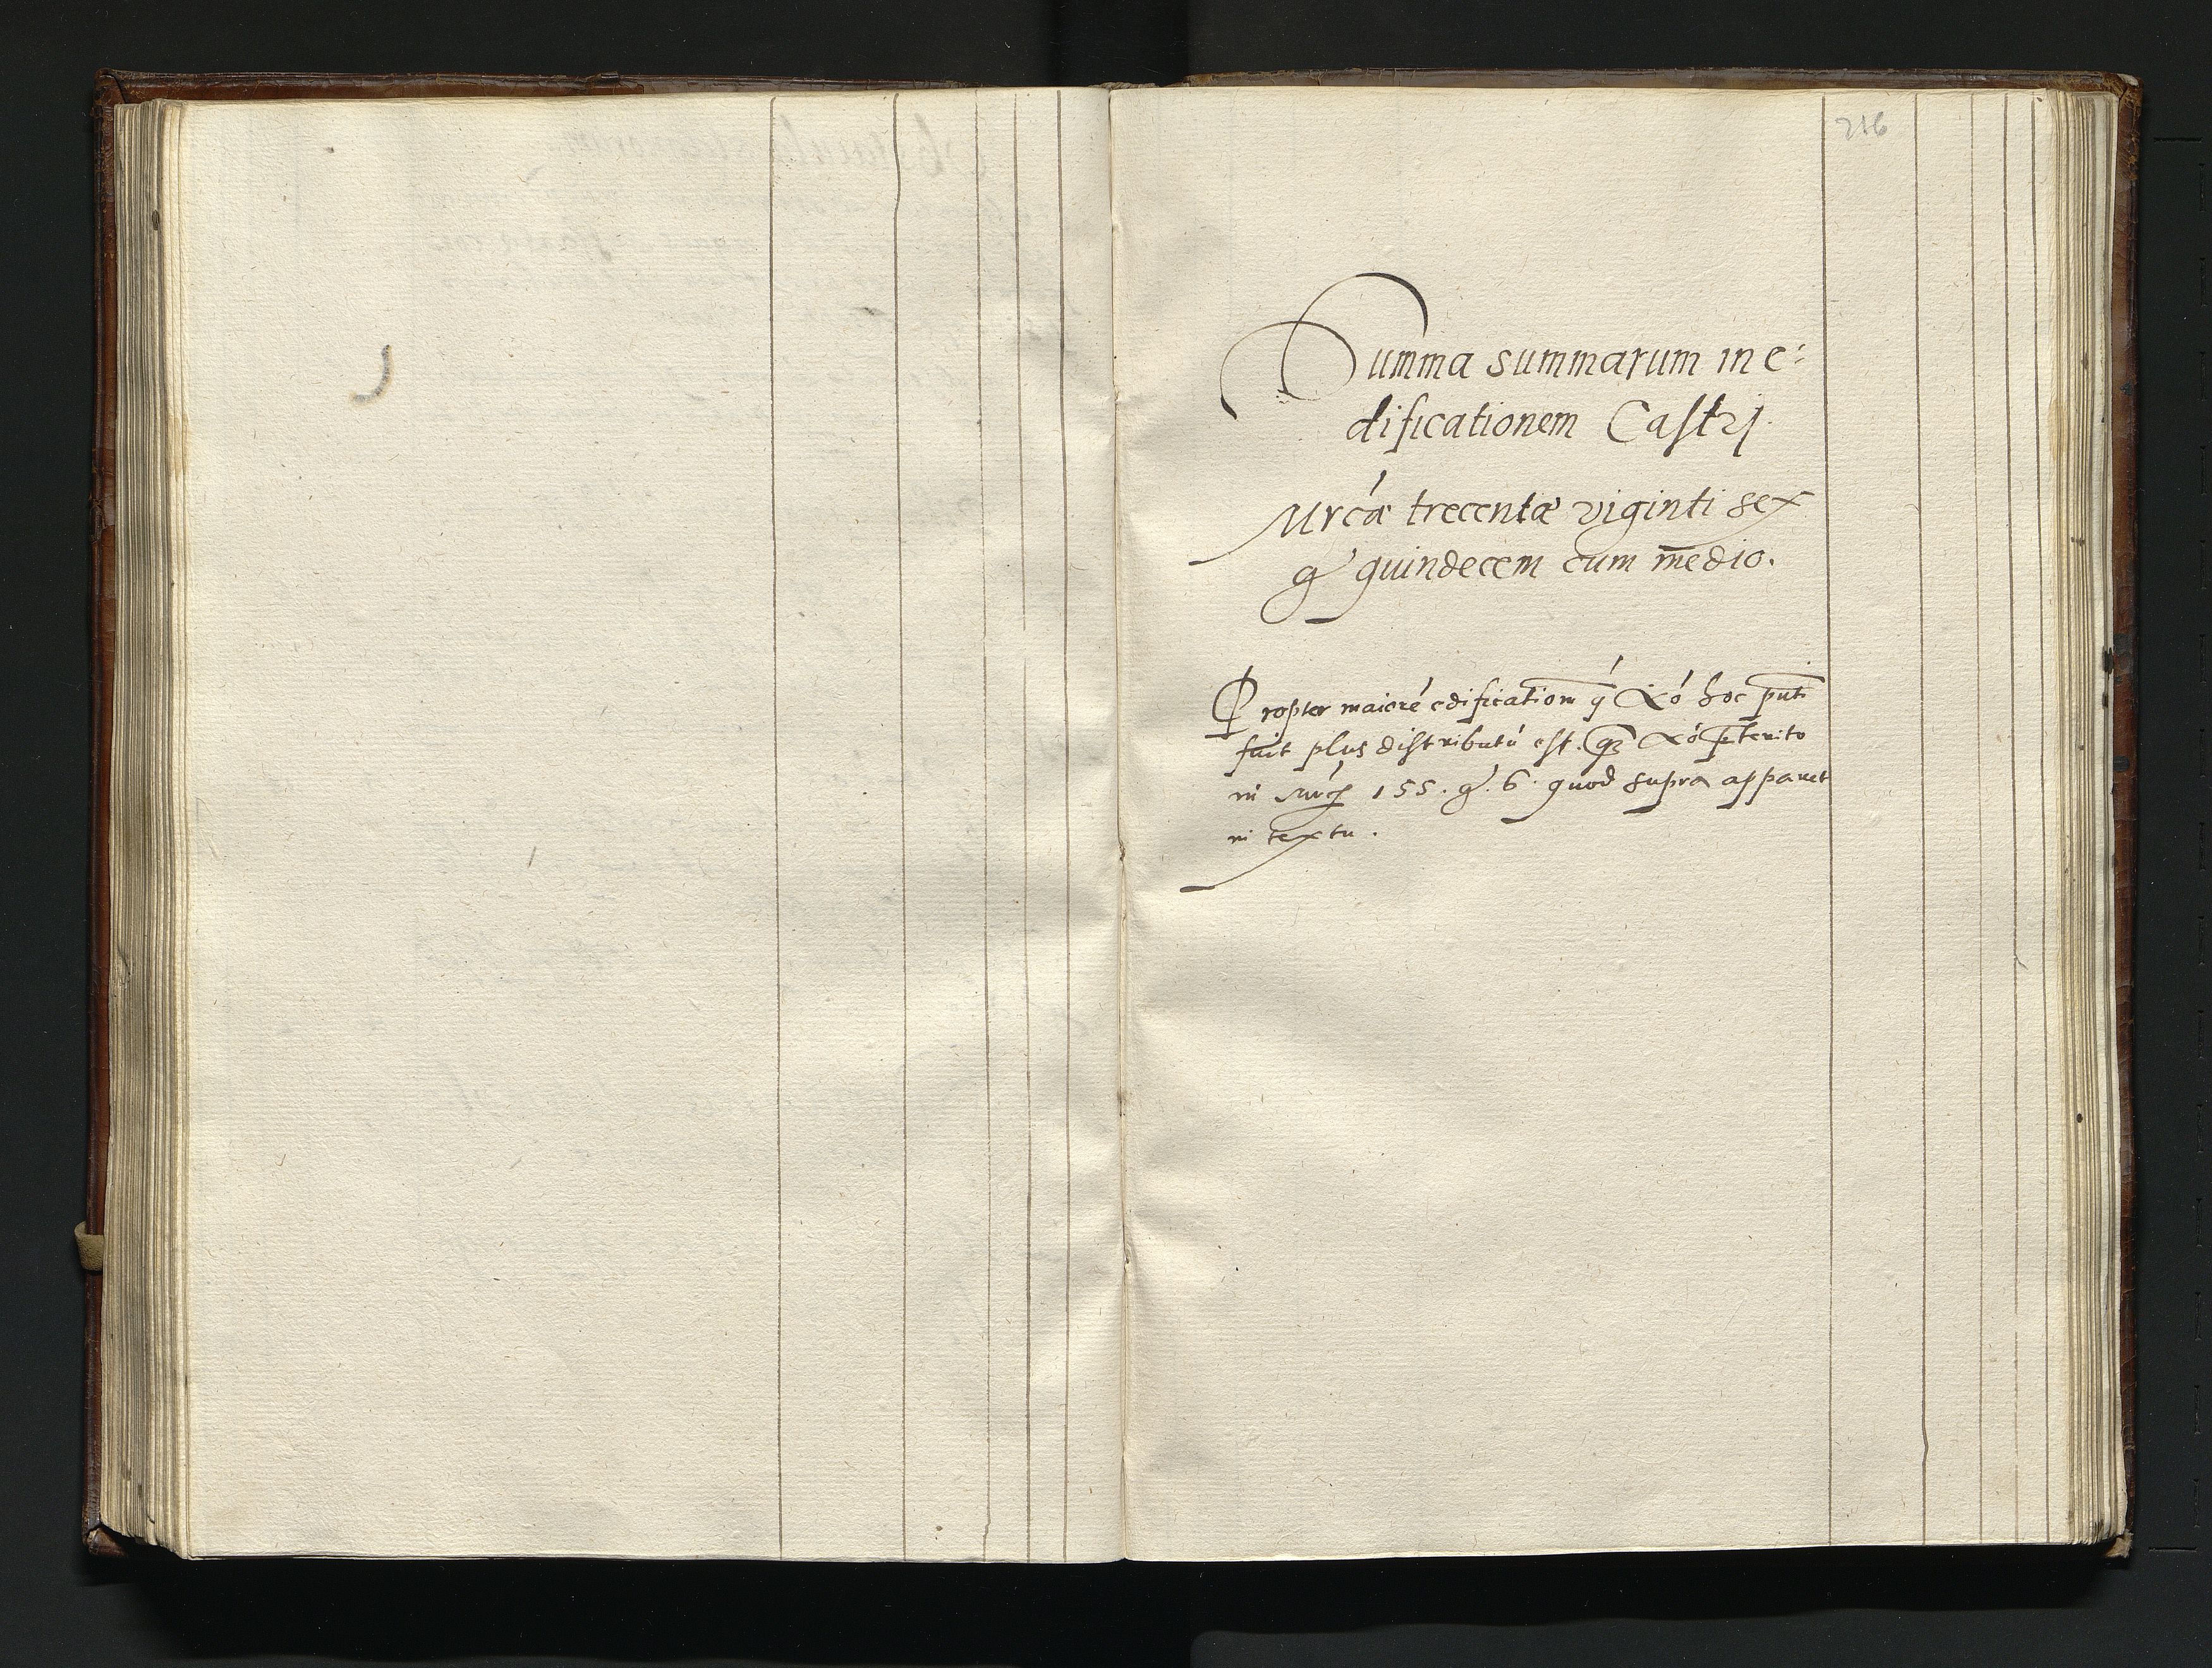 216
Summa summarum in e:
dificationem Castrj.
Mrcæ trecentæ viginti sex
g quindecem cum medio.
Propter maiorē edificationm q́ Aó hoc pnti
fuit plus distributū est. q̄ Aó pterito
in Mrcs 155. g. 6. quod supra apparet
in textu.